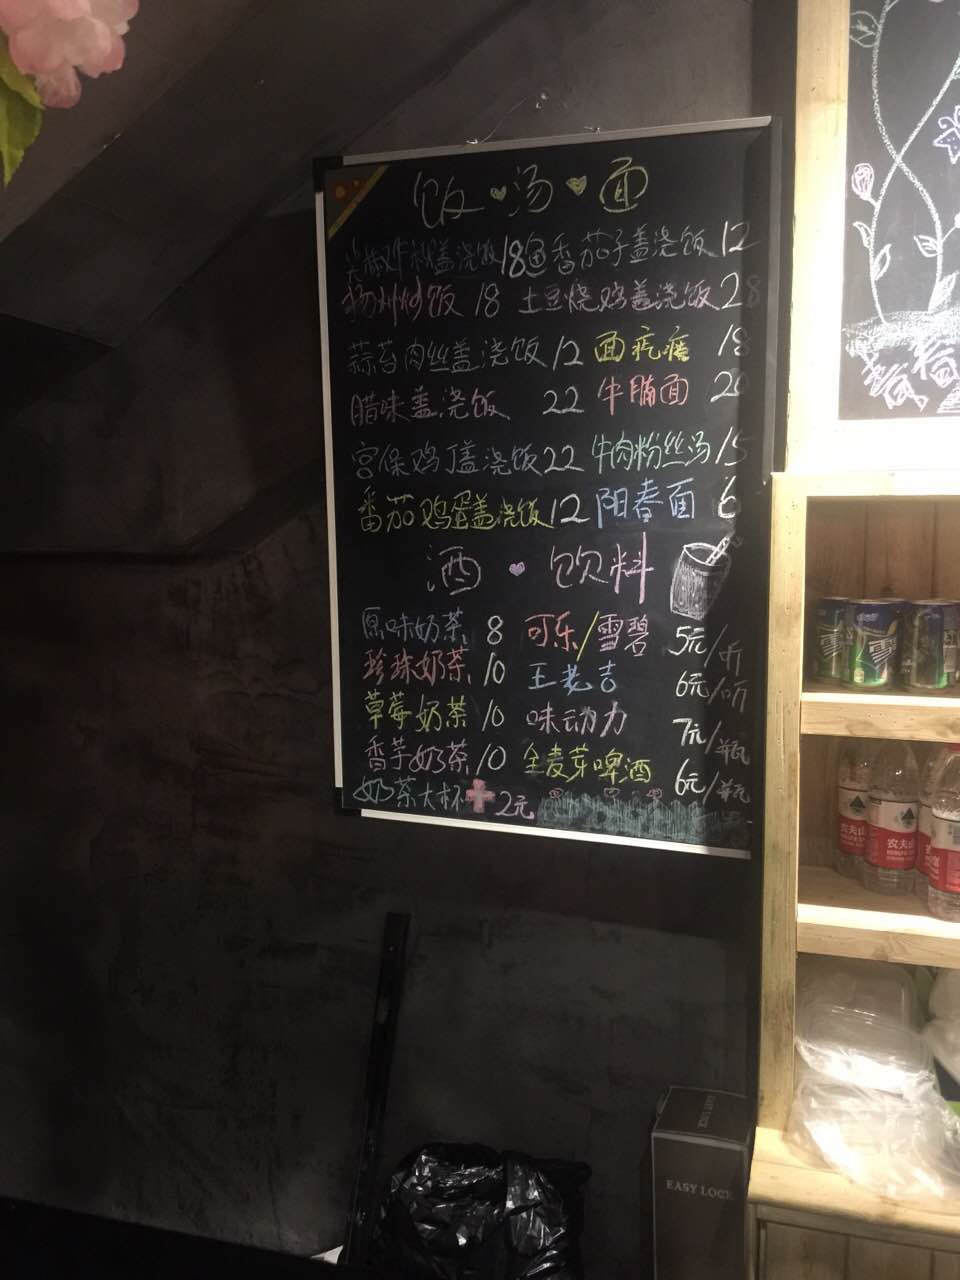 饭·汤·面
盖浇饭 18 鱼香茄子盖浇饭 12
扬州炒饭 18 土豆烧鸡盖浇饭 28
蒜苔肉丝盖浇饭 12 面疙瘩 18
腊味盖浇饭 22 牛腩面 20
宫保鸡丁盖浇饭 22 牛肉粉丝汤 15
番茄鸡蛋盖浇饭 12 阳春面 6
酒·饮料
原味奶茶 8 可乐/雪碧 5元/听
珍珠奶茶 10 王老吉 6元/听
草莓奶茶 10 味动力 7元/瓶
香芋奶茶 10 全麦芽啤酒 6元/瓶
奶茶大杯+2元
雪
农夫山
农夫山
EASY LOCK